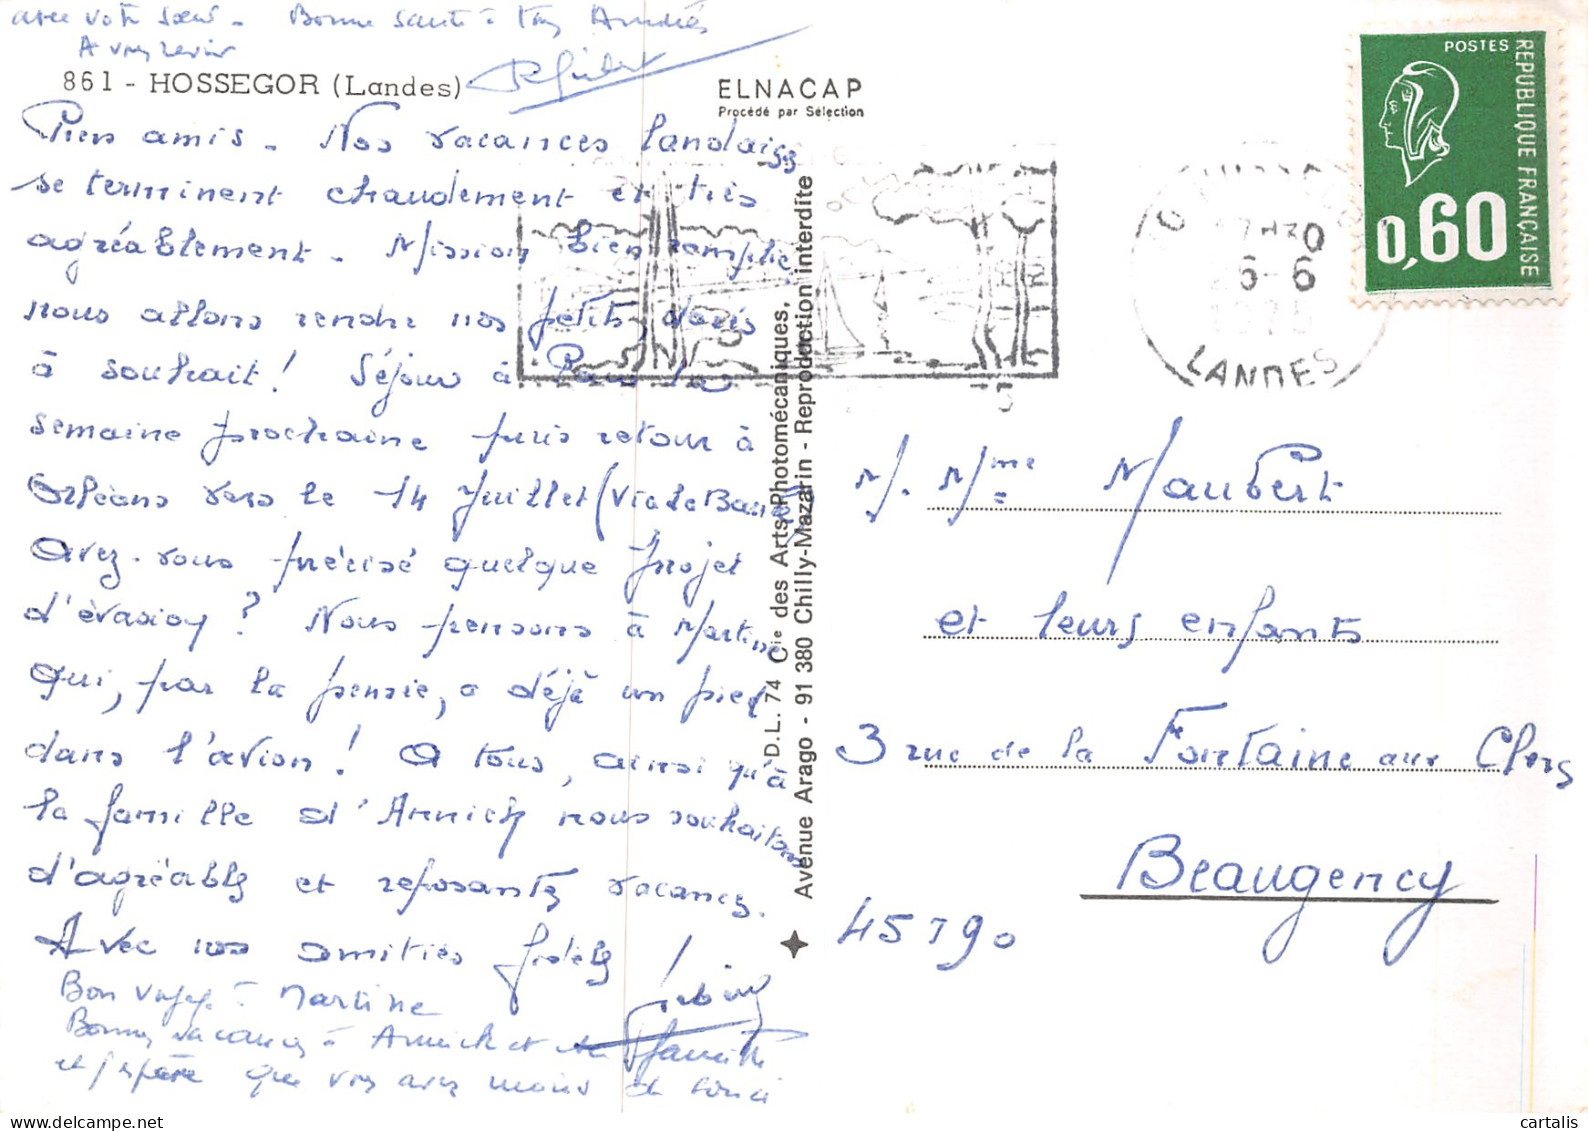 avec votre sœur - Bonne santé à tous Amitiés
A vous revoir
861 - HOSSEGOR (Landes)
ELNACAP
Procédé par Sélection
amis - Nos vacances landaises
se terminent chaudement et très
agréablement - Mission bien remplie
nous allons rendre nos petits, dorés
à souhait ! Séjour à Pau la
semaine prochaine puis retour à
Orléans vers le 14 Juillet (via La Baule)
Avez-vous précisé quelque projet
d'évasion ? Nous pensons à Martine
qui, par la pensée, a déjà un pied
dans l'avion ! A tous, ainsi qu'à
la famille d'Annick nous souhaitons
d'agréables et reposantes vacances.
Avec nos amitiés fidèles !
Bon voyage à Martine
Bonnes vacances à Annick et sa famille
et j'espère que vous avez moins de souci
D.L. 74 Cie des Arts Photomécaniques,
Avenue Arago - 91 380 Chilly-Mazarin - Reproduction interdite
POSTES
REPUBLIQUE FRANÇAISE
0,60
LANDES
M. Mme Maubert
et leurs enfants
3 rue de la Fontaine aux Clercs
Beaugency
45190